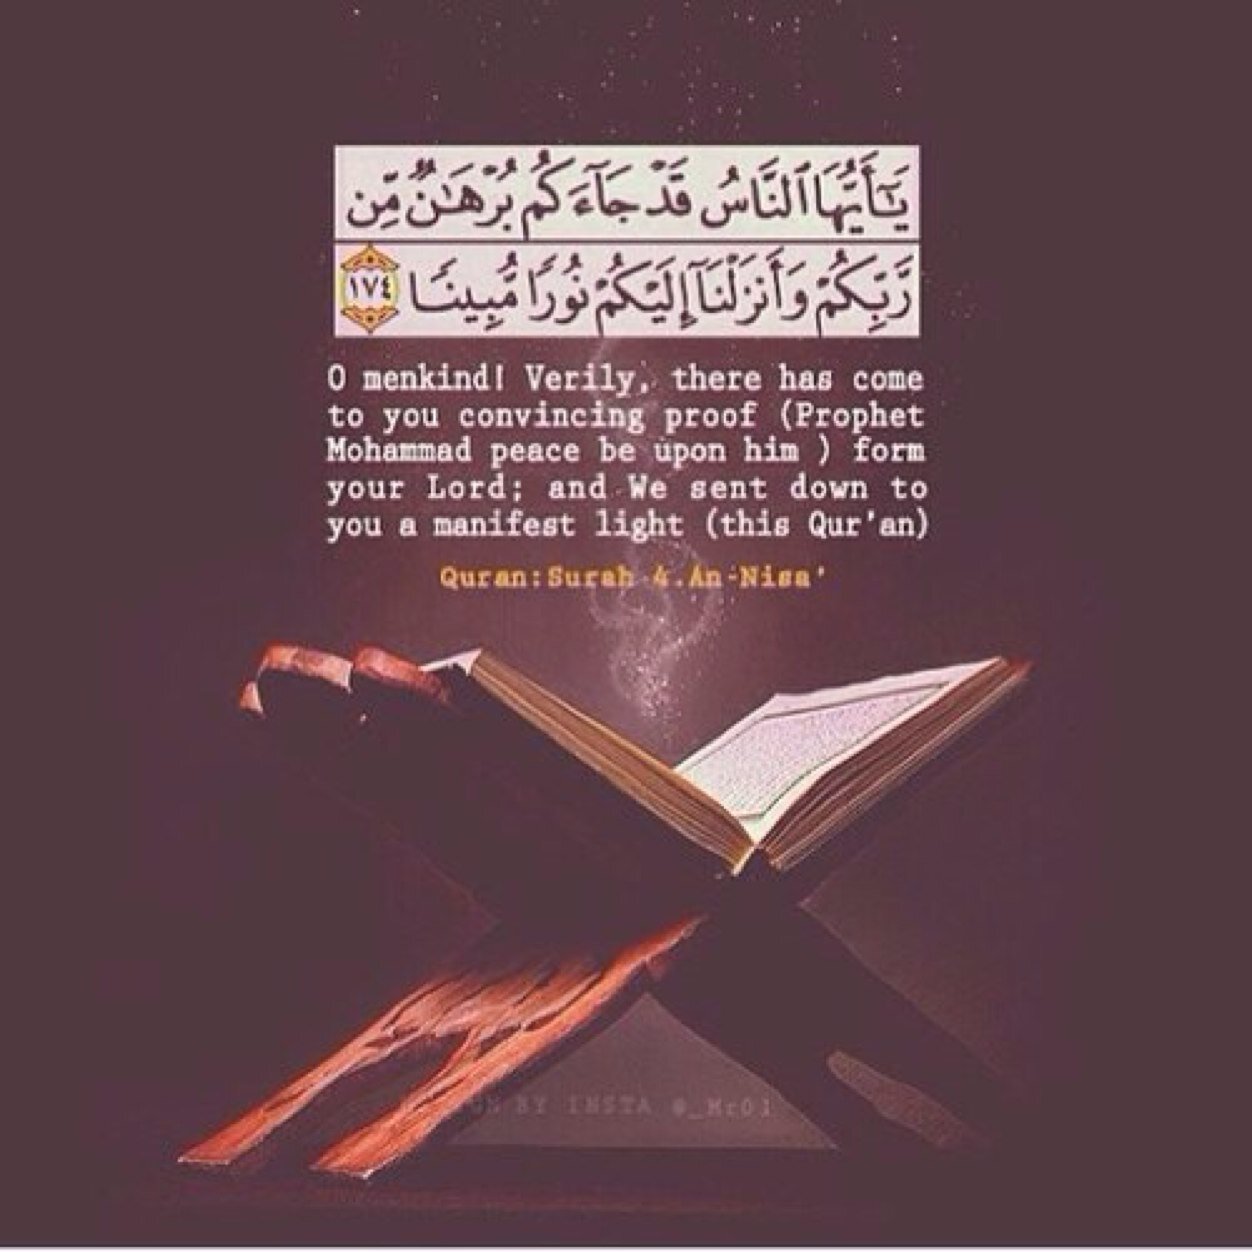 يَـٰٓأَيُّهَا ٱلنَّاسُ قَدْ جَآءَكُم بُرْهَـٰنٌ مِّن
رَّبِّكُمْ وَأَنزَلْنَآ إِلَيْكُمْ نُورًا مُّبِينًا ١٧٤
O menkind! Verily, there has come
to you convincing proof (Prophet
Mohammad peace be upon him ) form
your Lord; and We sent down to
you a manifest light (this Qur'an)
Quran:Surah 4.An-Nisa'
BY INSTA @_Mr01